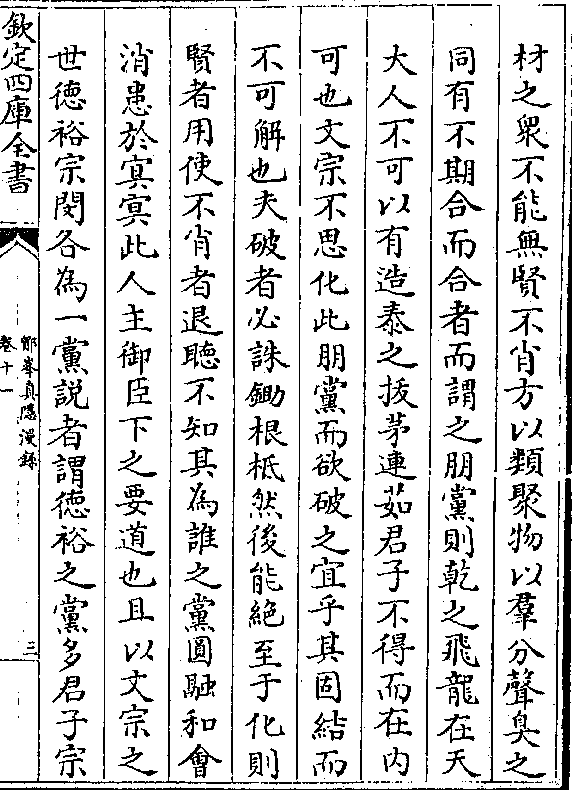 材之衆不能無賢不肖方以類聚物以羣分聲臭之
同有不期合而合者而謂之朋黨則乾之飛龍在天
大人不可以有造泰之拔茅連茹君子不得而在内
可也文宗不思化此朋黨而欲破之宜乎其固結而
不可解也夫破者必誅鋤根柢然後能絶至于化則
賢者用使不肖者退聽不知其為誰之黨圓融和會
消患於冥冥此人主御臣下之要道也且以文宗之
世德裕宗閔各為一黨説者謂德裕之黨多君子宗
欽定四庫全書
鄮峯真隱漫録
卷十一
三